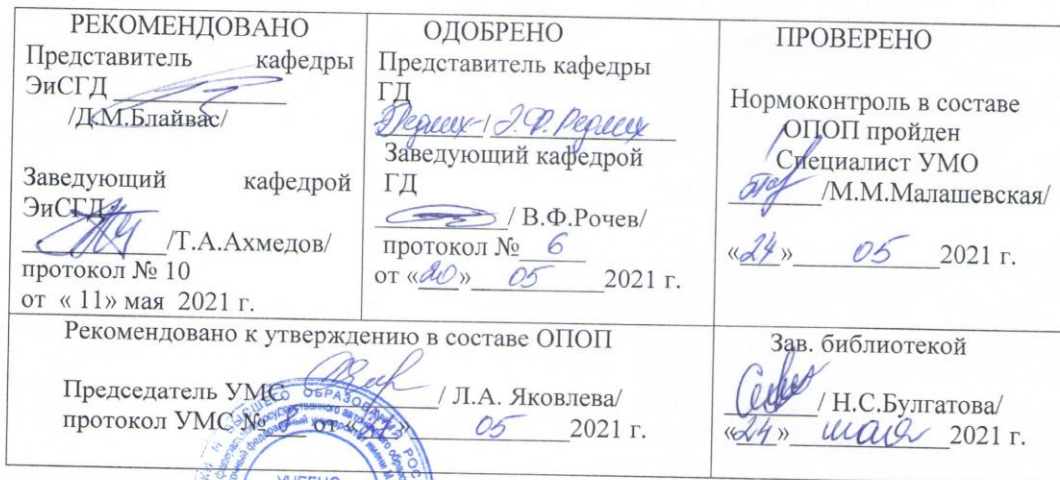 РЕКОМЕНДОВАНО
Представитель кафедры
ЭиСГД
/Д.М.Блайвас/
Заведующий кафедрой
ЭиСГД
/Т.А.Ахмедов/
протокол № 10
от « 11» мая 2021 г.
ОДОБРЕНО
Представитель кафедры
ГД
Редлих / Э.Ф. Редлих
Заведующий кафедрой
ГД
/ В.Ф.Рочев/
протокол № 6
от «20» 05 2021 г.
ПРОВЕРЕНО
Нормоконтроль в составе
ОПОП пройден
Специалист УМО
/М.М.Малашевская/
«24» 05 2021 г.
Рекомендовано к утверждению в составе ОПОП
Председатель УМС / Л.А. Яковлева/
протокол УМС № от « 05 2021 г.
Зав. библиотекой
/ Н.С.Булгатова/
«24» мая 2021 г.
ВЫСШЕГО ОБРАЗОВАНИЯ
УЧЕБНО